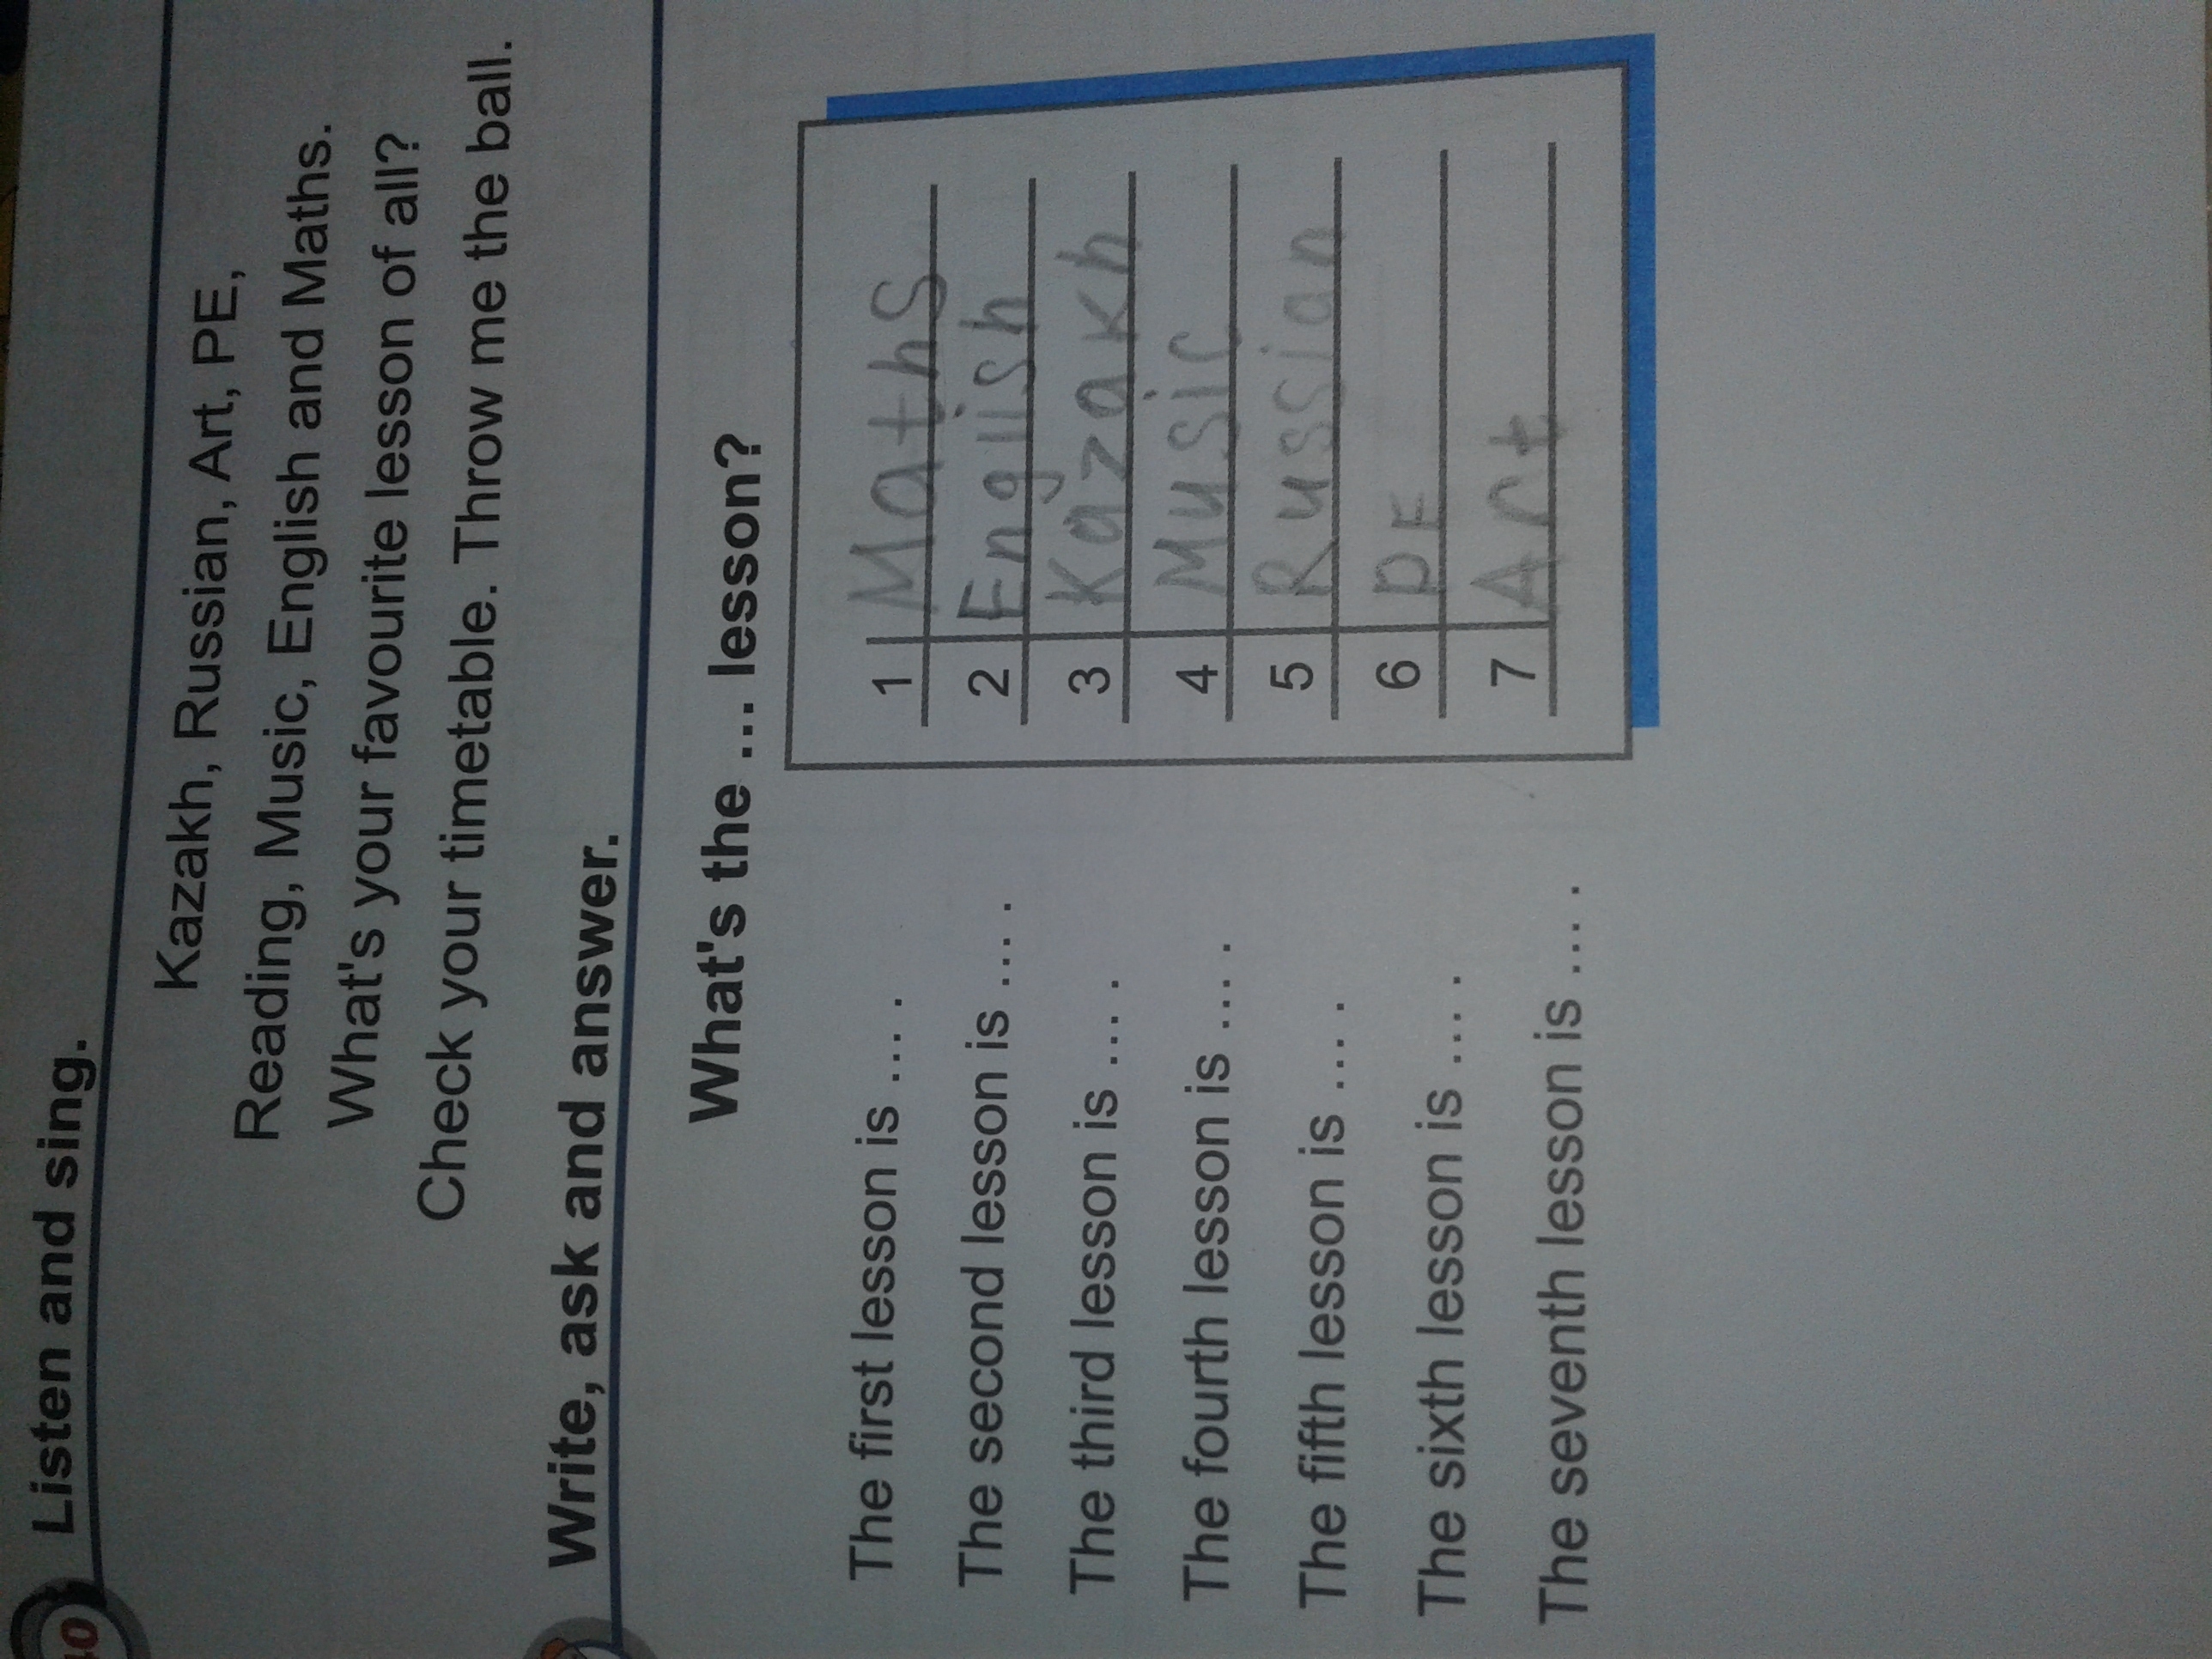 Listen and sing.
Kazakh, Russian, Art, PE,
Reading, Music, English and Maths.
What's your favourite lesson of all?
Check your timetable. Throw me the ball.
Write, ask and answer.
What's the ... lesson?
The first lesson is ... .
The second lesson is .... .
The third lesson is ... .
The fourth lesson is ... .
The fifth lesson is ... .
The sixth lesson is ... .
The seventh lesson is ... .
1 Maths
2 English
3 Kazakh
4 Music
5 Russian
6 PE
7 Art